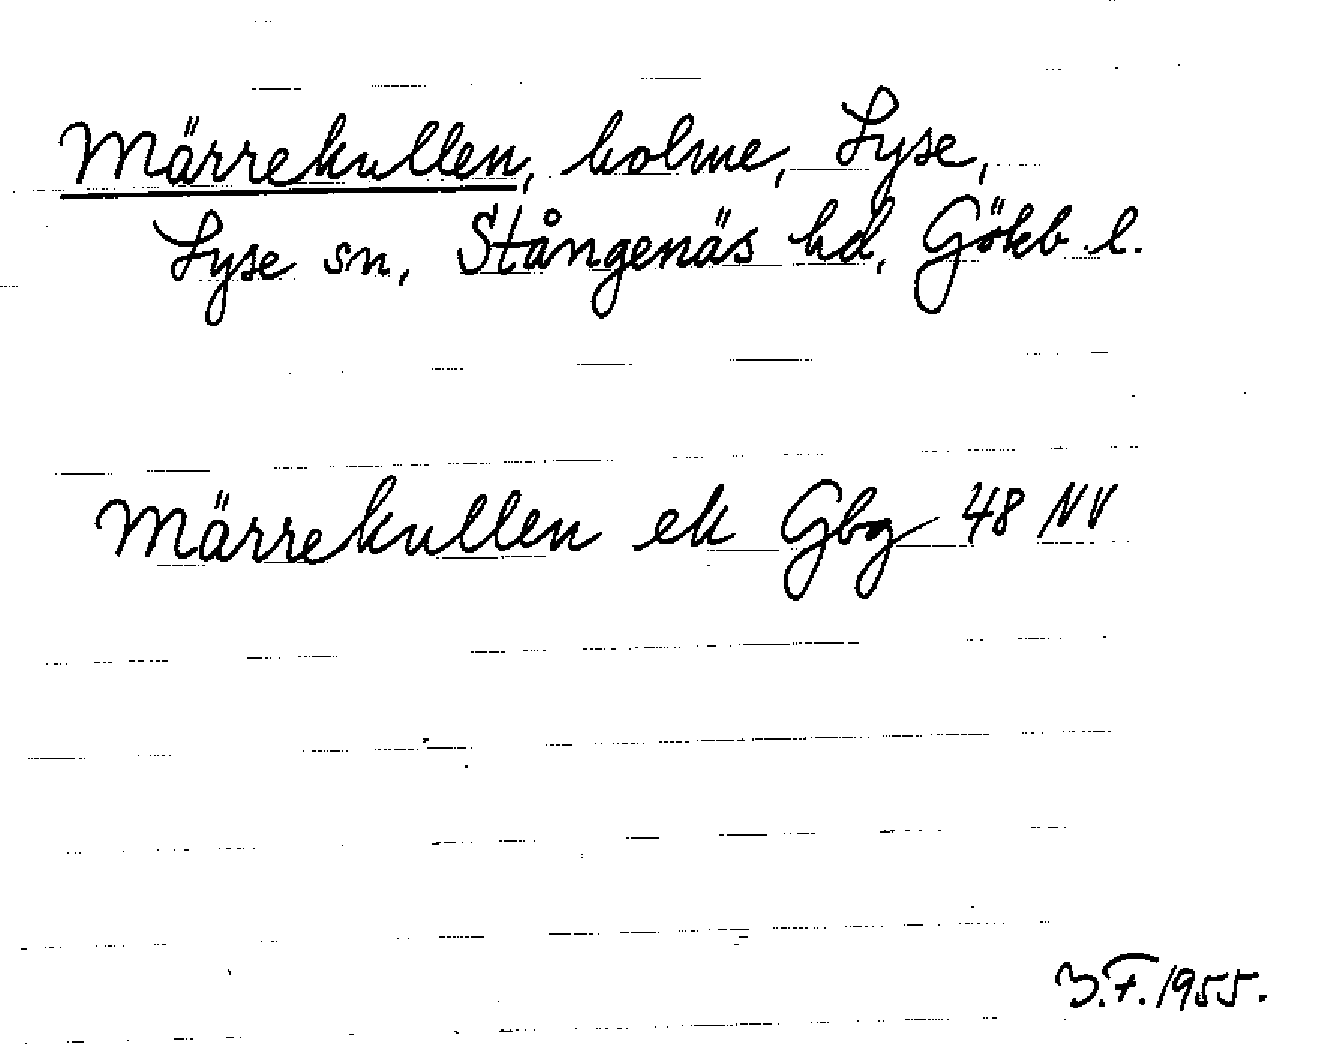 Märrekullen, holme, Lyse,
Lyse sn, Stångenäs hd, Gökb l.
Märrekullen ek Gbg 48 NV
F. 1955.